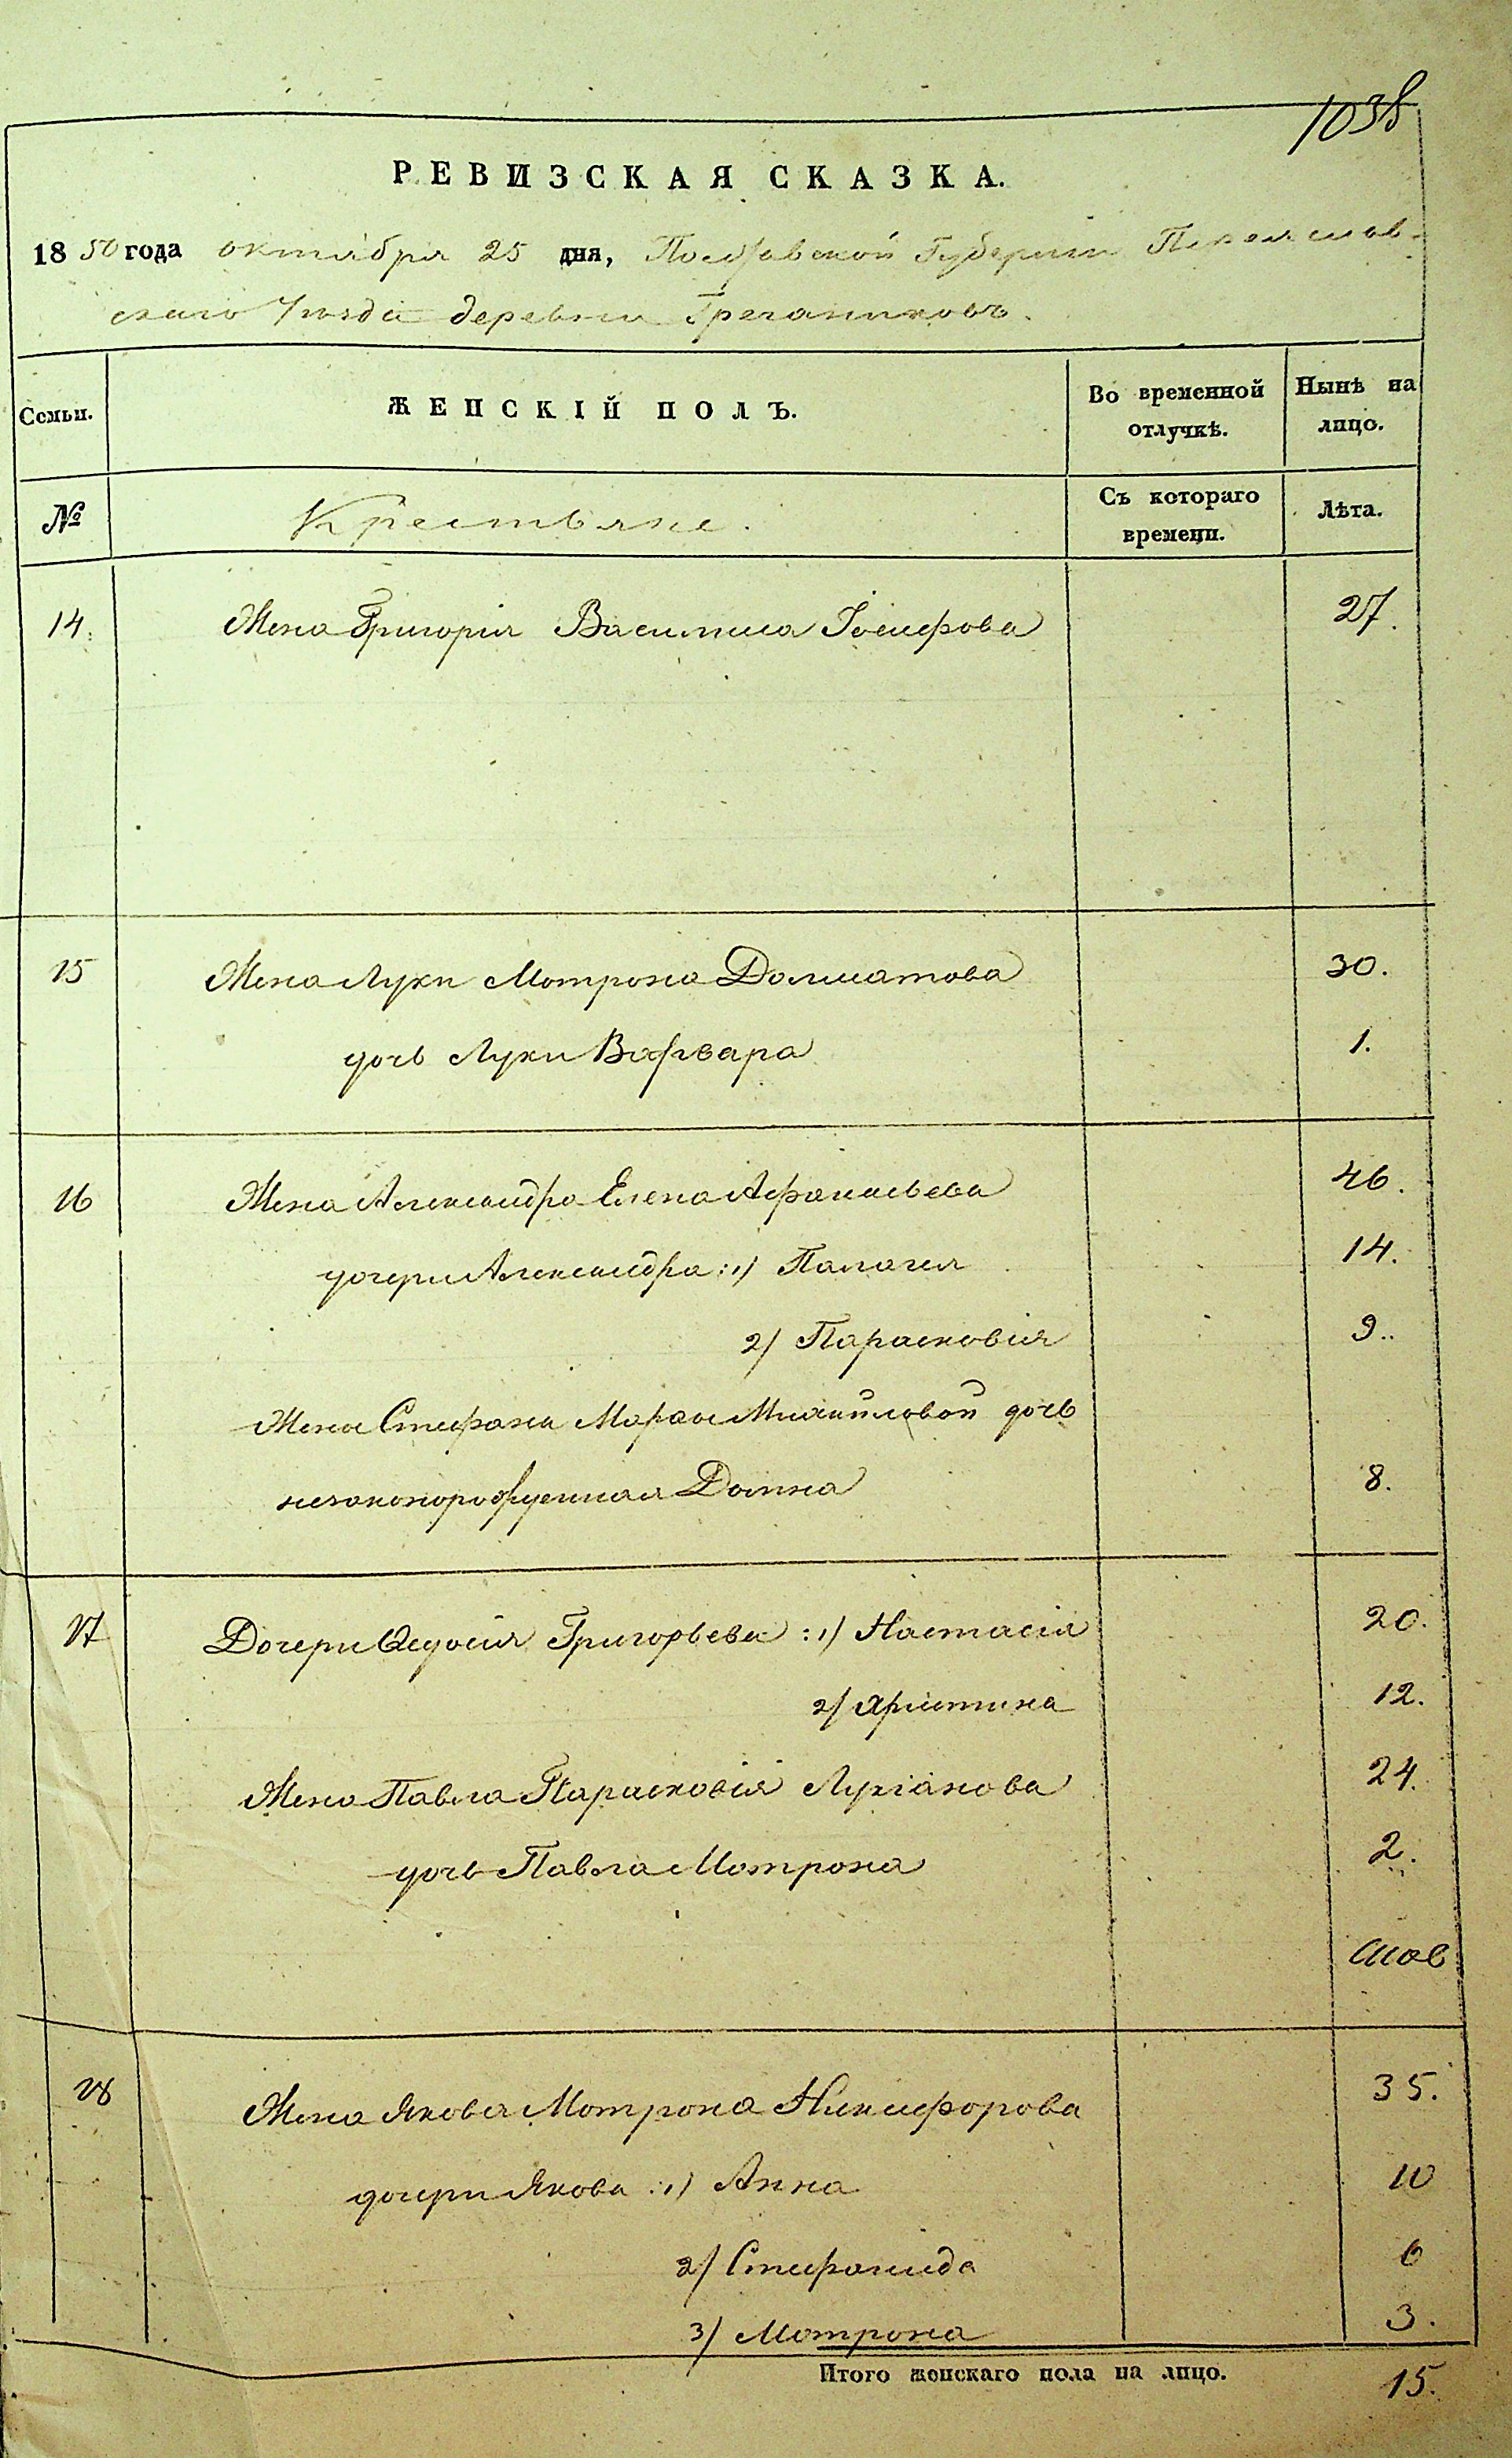 1038
РЕВИЗСКАЯ СКАЗКА.
1850 года октября 25 дня, Полтавской Губернии Переяслав-
скаго Уѣзда деревни Гречаниковъ.
Семьи. ЖЕНСКІЙ ПОЛЪ. Во временной отлучкѣ. Нынѣ на лицо.
№ Крестьяне. Съ котораго времени. Лѣта.
14. Жена Григорія Василиса Іосифова 27.
15 Жена Луки Мотрона Долматова 30.
дочь Луки Варвара 1.
16 Жена Александра Елена Афанасьева 46.
дочери Александра: 1) Палагея 14.
2) Парасковія 9.
Жены Стефана Марфы Михайловой дочь
незаконорожденная Домна 8.
17 Дочери Ѳедосія Григорьева: 1) Настасія 20.
2) Христина 12.
Жена Павла Парасковія Лукіянова 24.
дочь Павла Мотрона 2.
18 Жена Якова Мотрона Никифорова 35.
дочери Якова: 1) Анна 10
2) Стефанида 6
3) Мотрона 3.
Итого женскаго пола на лицо. 15.